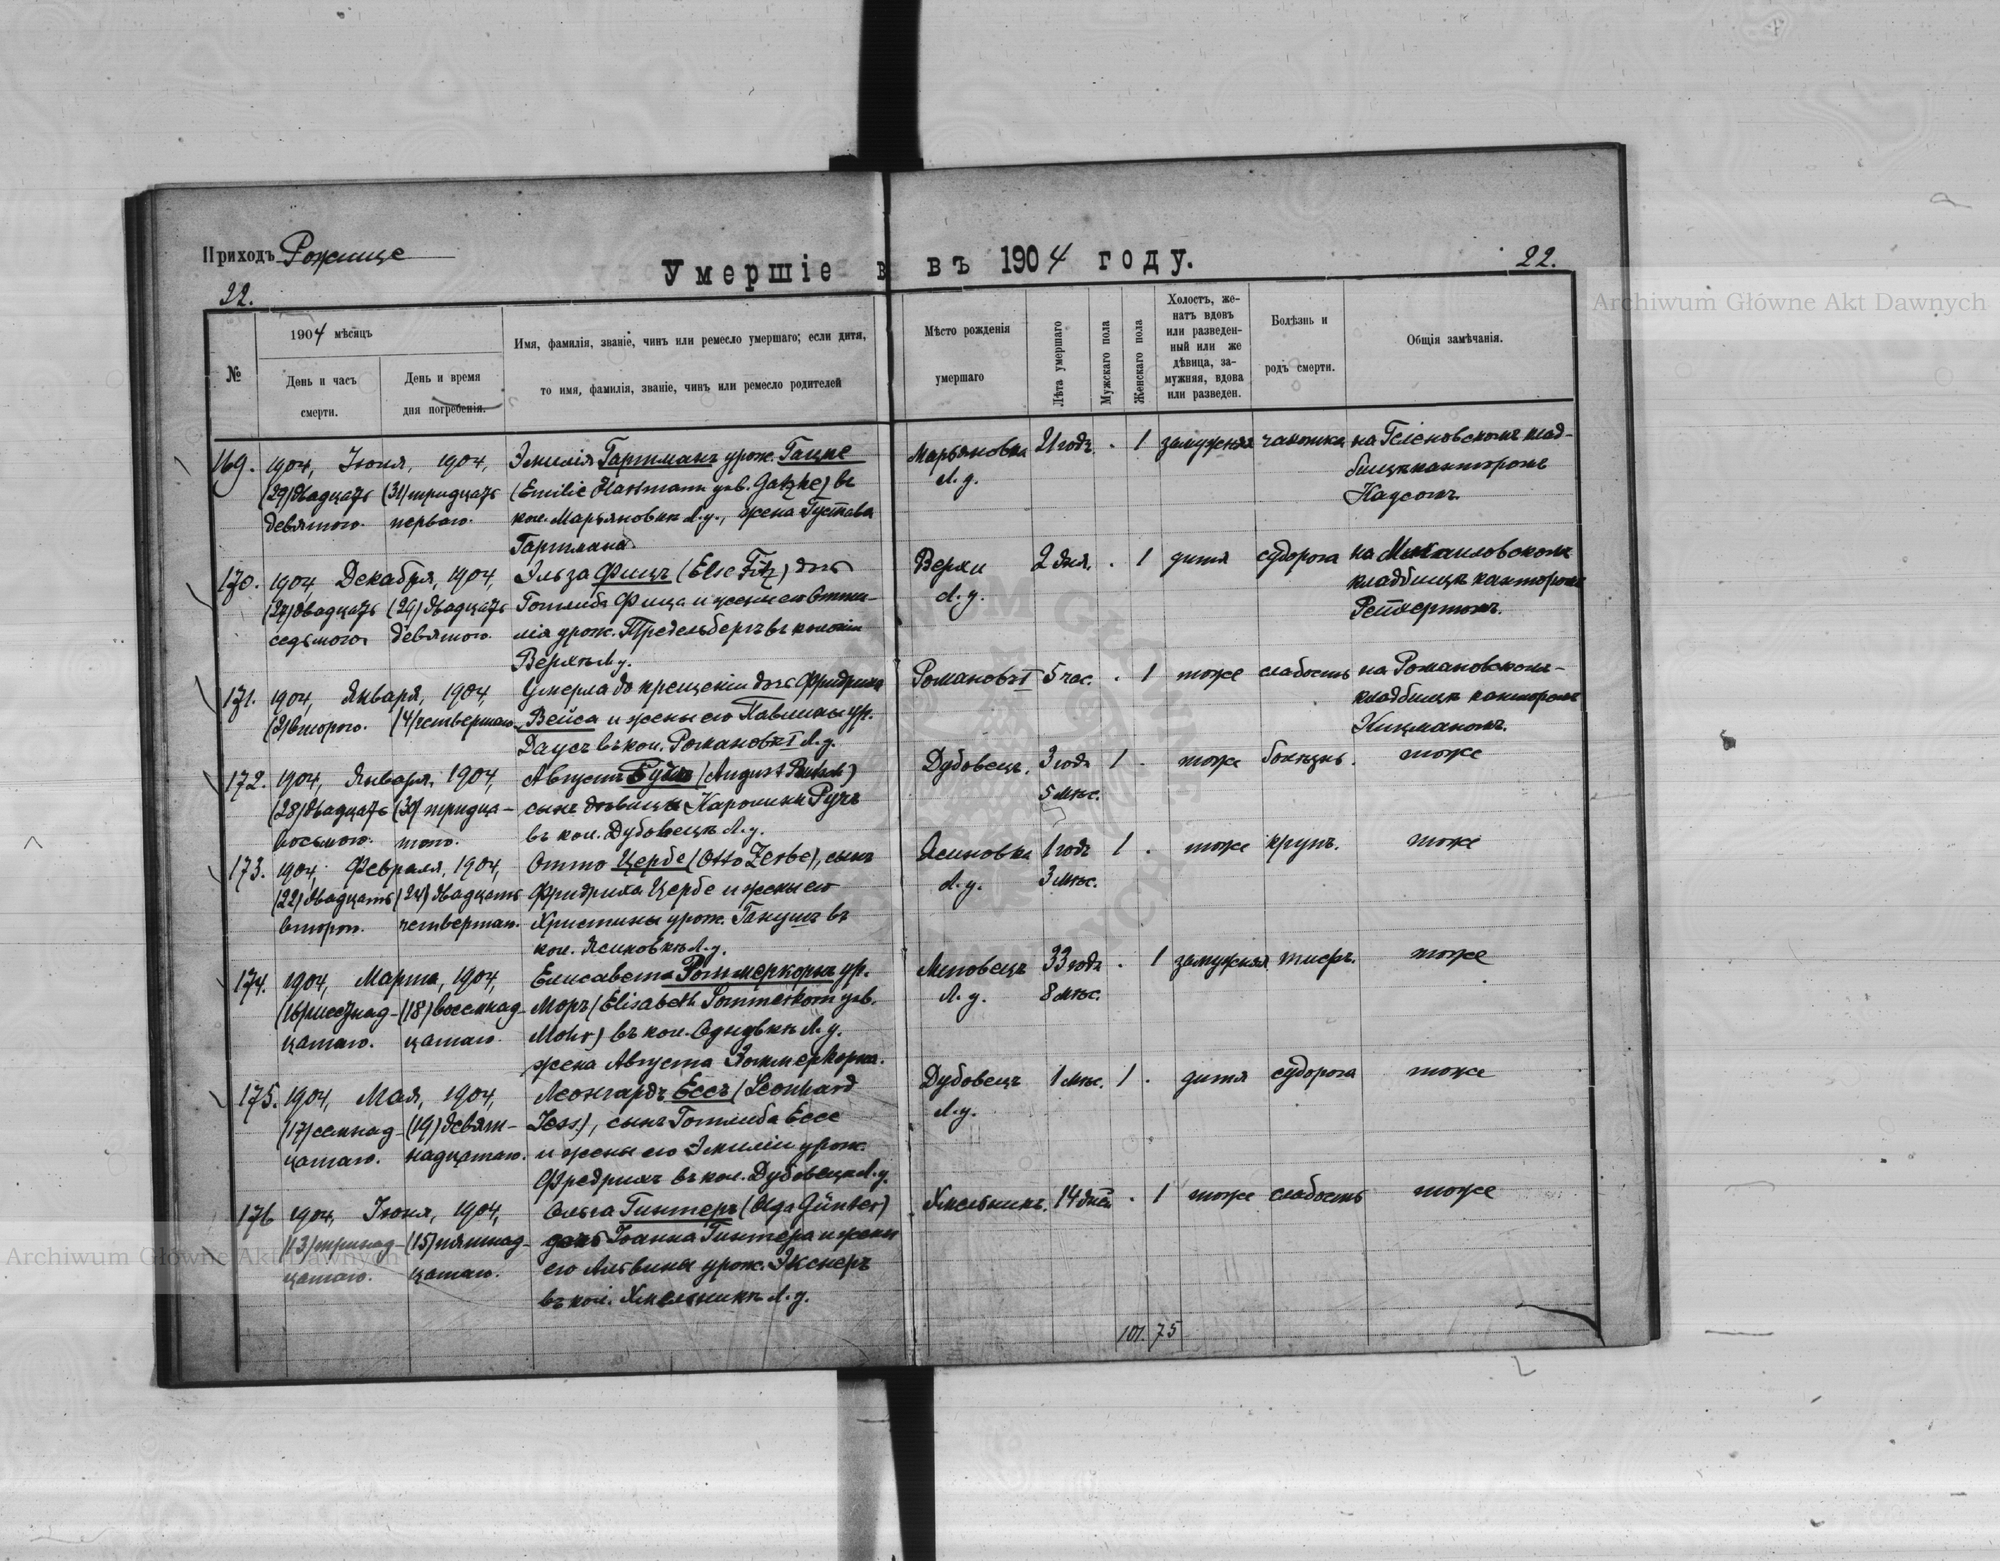 Приходъ Рожище
Умершіе въ 1904 году.
22.
22.
№
1904 мѣсяцъ
День и часъ
смерти.
День и время
дня погребенія.
Имя, фамилія, званіе, чинъ или ремесло умершаго; если дитя,
то имя, фамилія, званіе, чинъ или ремесло родителей
Мѣсто рожденія
умершаго
Лѣта умершаго
Мужскаго пола
Женскаго пола
Холостъ, же-
натъ вдовъ
или разведен-
ный или же
дѣвица, за-
мужняя, вдова
или разведен.
Болѣзнь и
родъ смерти.
Общія замѣчанія.
169. 1904, Іюня, 1904, Эмилія Гартманъ урож. Гацке Марьяновка 21 годъ . 1 замужняя чахотка на клад-
(29) двадцать (31) тридцать (Emilie Hartmann geb. Gatzke) въ Л. у. бищѣ канторомъ
девятого. перваго. кол. Марьяновкѣ Л. у., жена Густава Кадсомъ
Гартмана.
170. 1904, Декабря, 1904, Эльза Фицъ (Else Fitz) дочь Верхи 2 дня. . 1 дитя судорога на Михаиловскомъ
(27) двадцать (29) двадцать Готлиба Фица и жены его Отти- Л. у. кладбищѣ канторомъ
седьмого девятого. ліи урож. въ колоніи
Верхи Л. у.
171. 1904, Января, 1904, Умерла до крещенія дочь Фридриха Романовъ I 5 час. . 1 тоже слабость на Романовскомъ
(2) второго. (4) четвертаго. Вейса и жены его Павлины ур. кладбищѣ канторомъ
Даусъ въ кол. Романовкѣ I Л. у. Кицманомъ.
172. 1904, Января, 1904, Августъ (August Rutsch) Дубовецъ. 3 года 1 . тоже тоже
(28) двадцать (30) тридца- сынъ дѣвицы Каролины Ручъ 5 мѣс.
восьмого. того. въ кол. Дубовецъ Л. у.
173. 1904, Февраля, 1904, Отто Цербе (Otto Zerbe), сынъ Ясиновка 1 годъ 1 . тоже крупъ. тоже
(22) двадцать (24) двадцать Фридриха Цербе и жены его Л. у. 3 мѣс.
второго. четвертаго. Христины урож. въ
кол. Ясиновкѣ Л. у.
174. 1904, Марта, 1904, Елисавета ур. Липовецъ 33 года . 1 замужняя тифъ. тоже
(16) шестнад- (18) восемнад- Моръ (Elisabeth Sommerkorn geb. Л. у. 8 мѣс.
цатаго. цатаго. Mohr) въ кол. Л. у.
жена Августа Зоммеркорна.
175. 1904, Мая, 1904, Леонгардъ Ессъ (Leonhard Дубовецъ 1 мѣс. 1 . дитя судорога тоже
(17) семнад- (19) девят- Jess), сынъ Готлиба Ессе Л. у.
цатаго. надцатаго. и жены его Эмиліи урож.
Фредрихъ въ кол. Дубовецъ Л. у.
176 1904, Іюня, 1904, Ольга Гинтеръ (Olga Günter) Хмельникъ. 14 дней . 1 тоже слабость тоже
(13) тринад- (15) пятнад- дочь Іоанна Гинтера и жены
цатаго. цатаго. его Альвины урож. Экснеръ
въ кол. Хмельникѣ Л. у.
101. 75
Archiwum Główne Akt Dawnych
Archiwum Główne Akt Dawnych